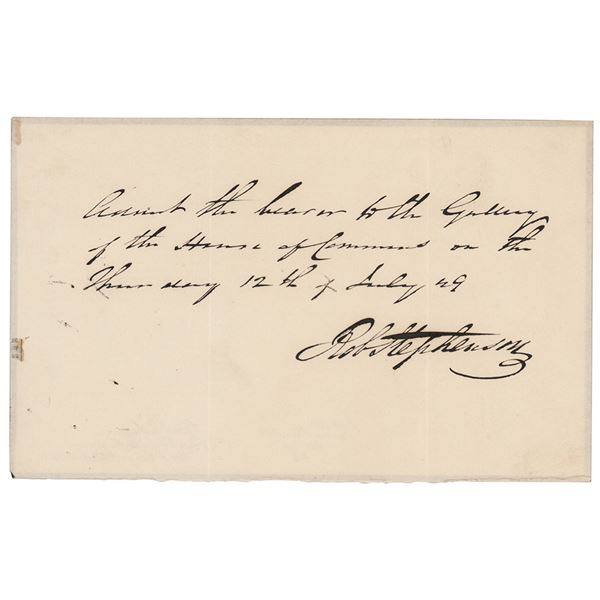 Admit the bearer to the Gallery
of the House of Commons on the
Thursday 12th of July 49
RobStephenson